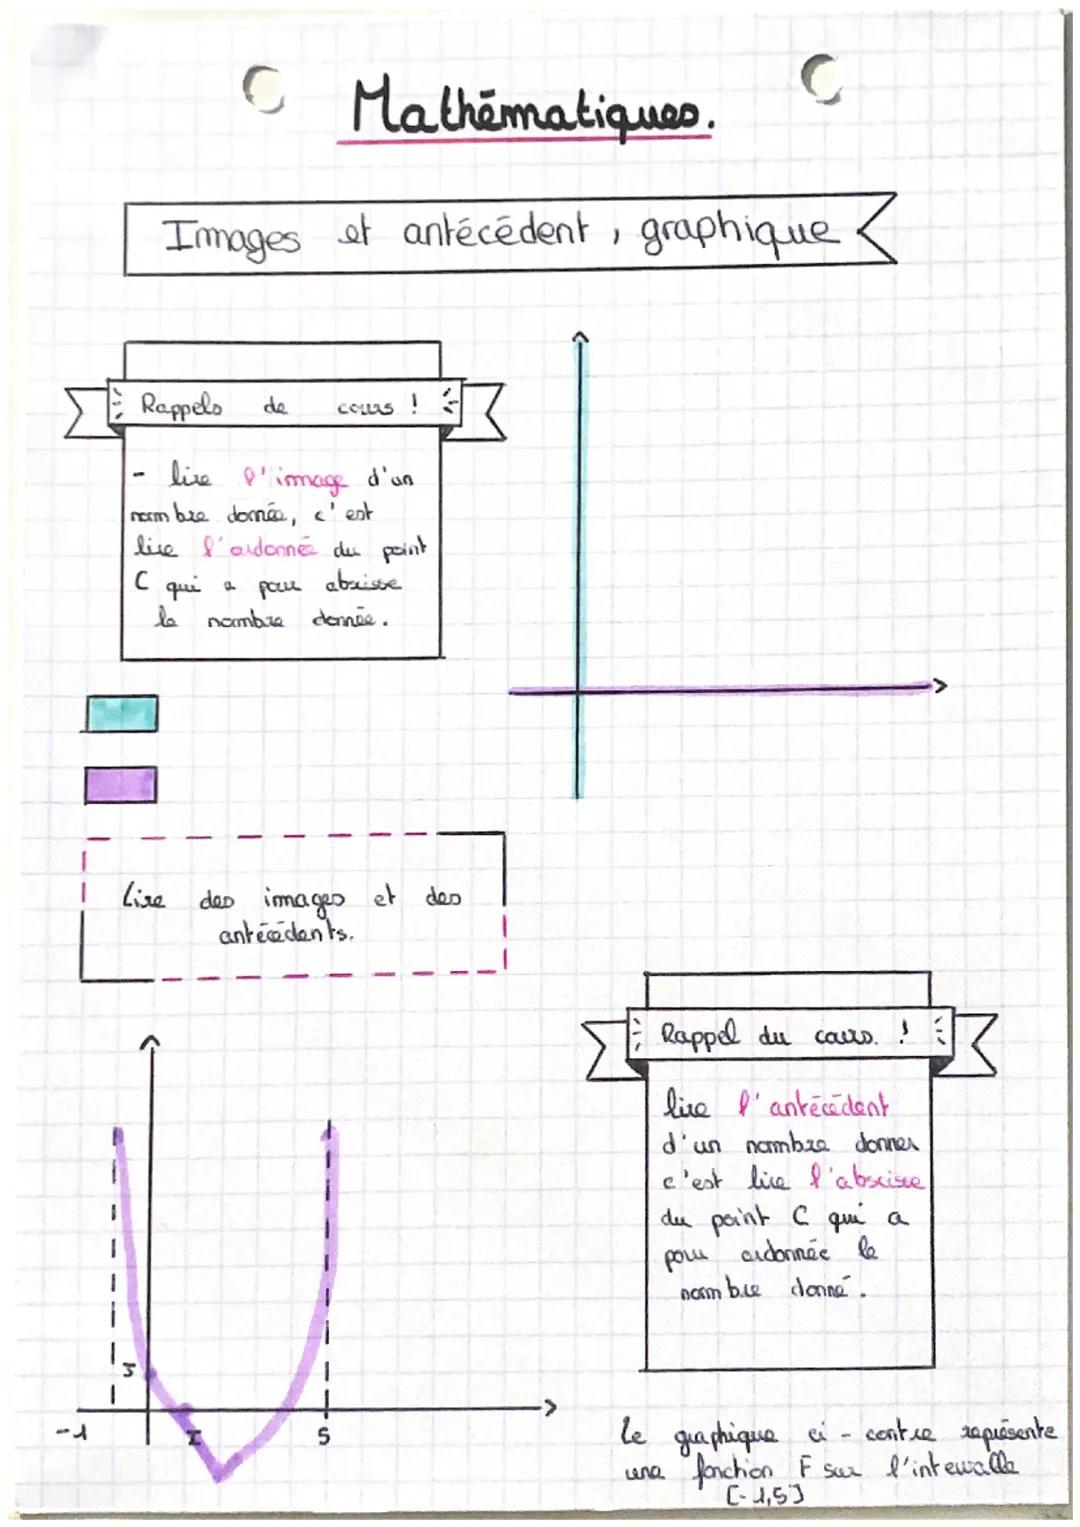 Mathématiques.
Images et antécédent, graphique
Rappels de cours !
- lire l'image d'un
nombre donnée, c'est
lire l'ordonnée du point
C qui a pour abscisse
le nombre donnée.
Lire des images et des
antécédents.
Rappel du cours. !
lire l'antécédent
d'un nombre donner
c'est lire l'abscisse
du point C qui a
pour ordonnée le
nombre donné.
J
-1
I
5
Le graphique ci-contre représente
une fonction F sur l'intervalle
[-1,5]